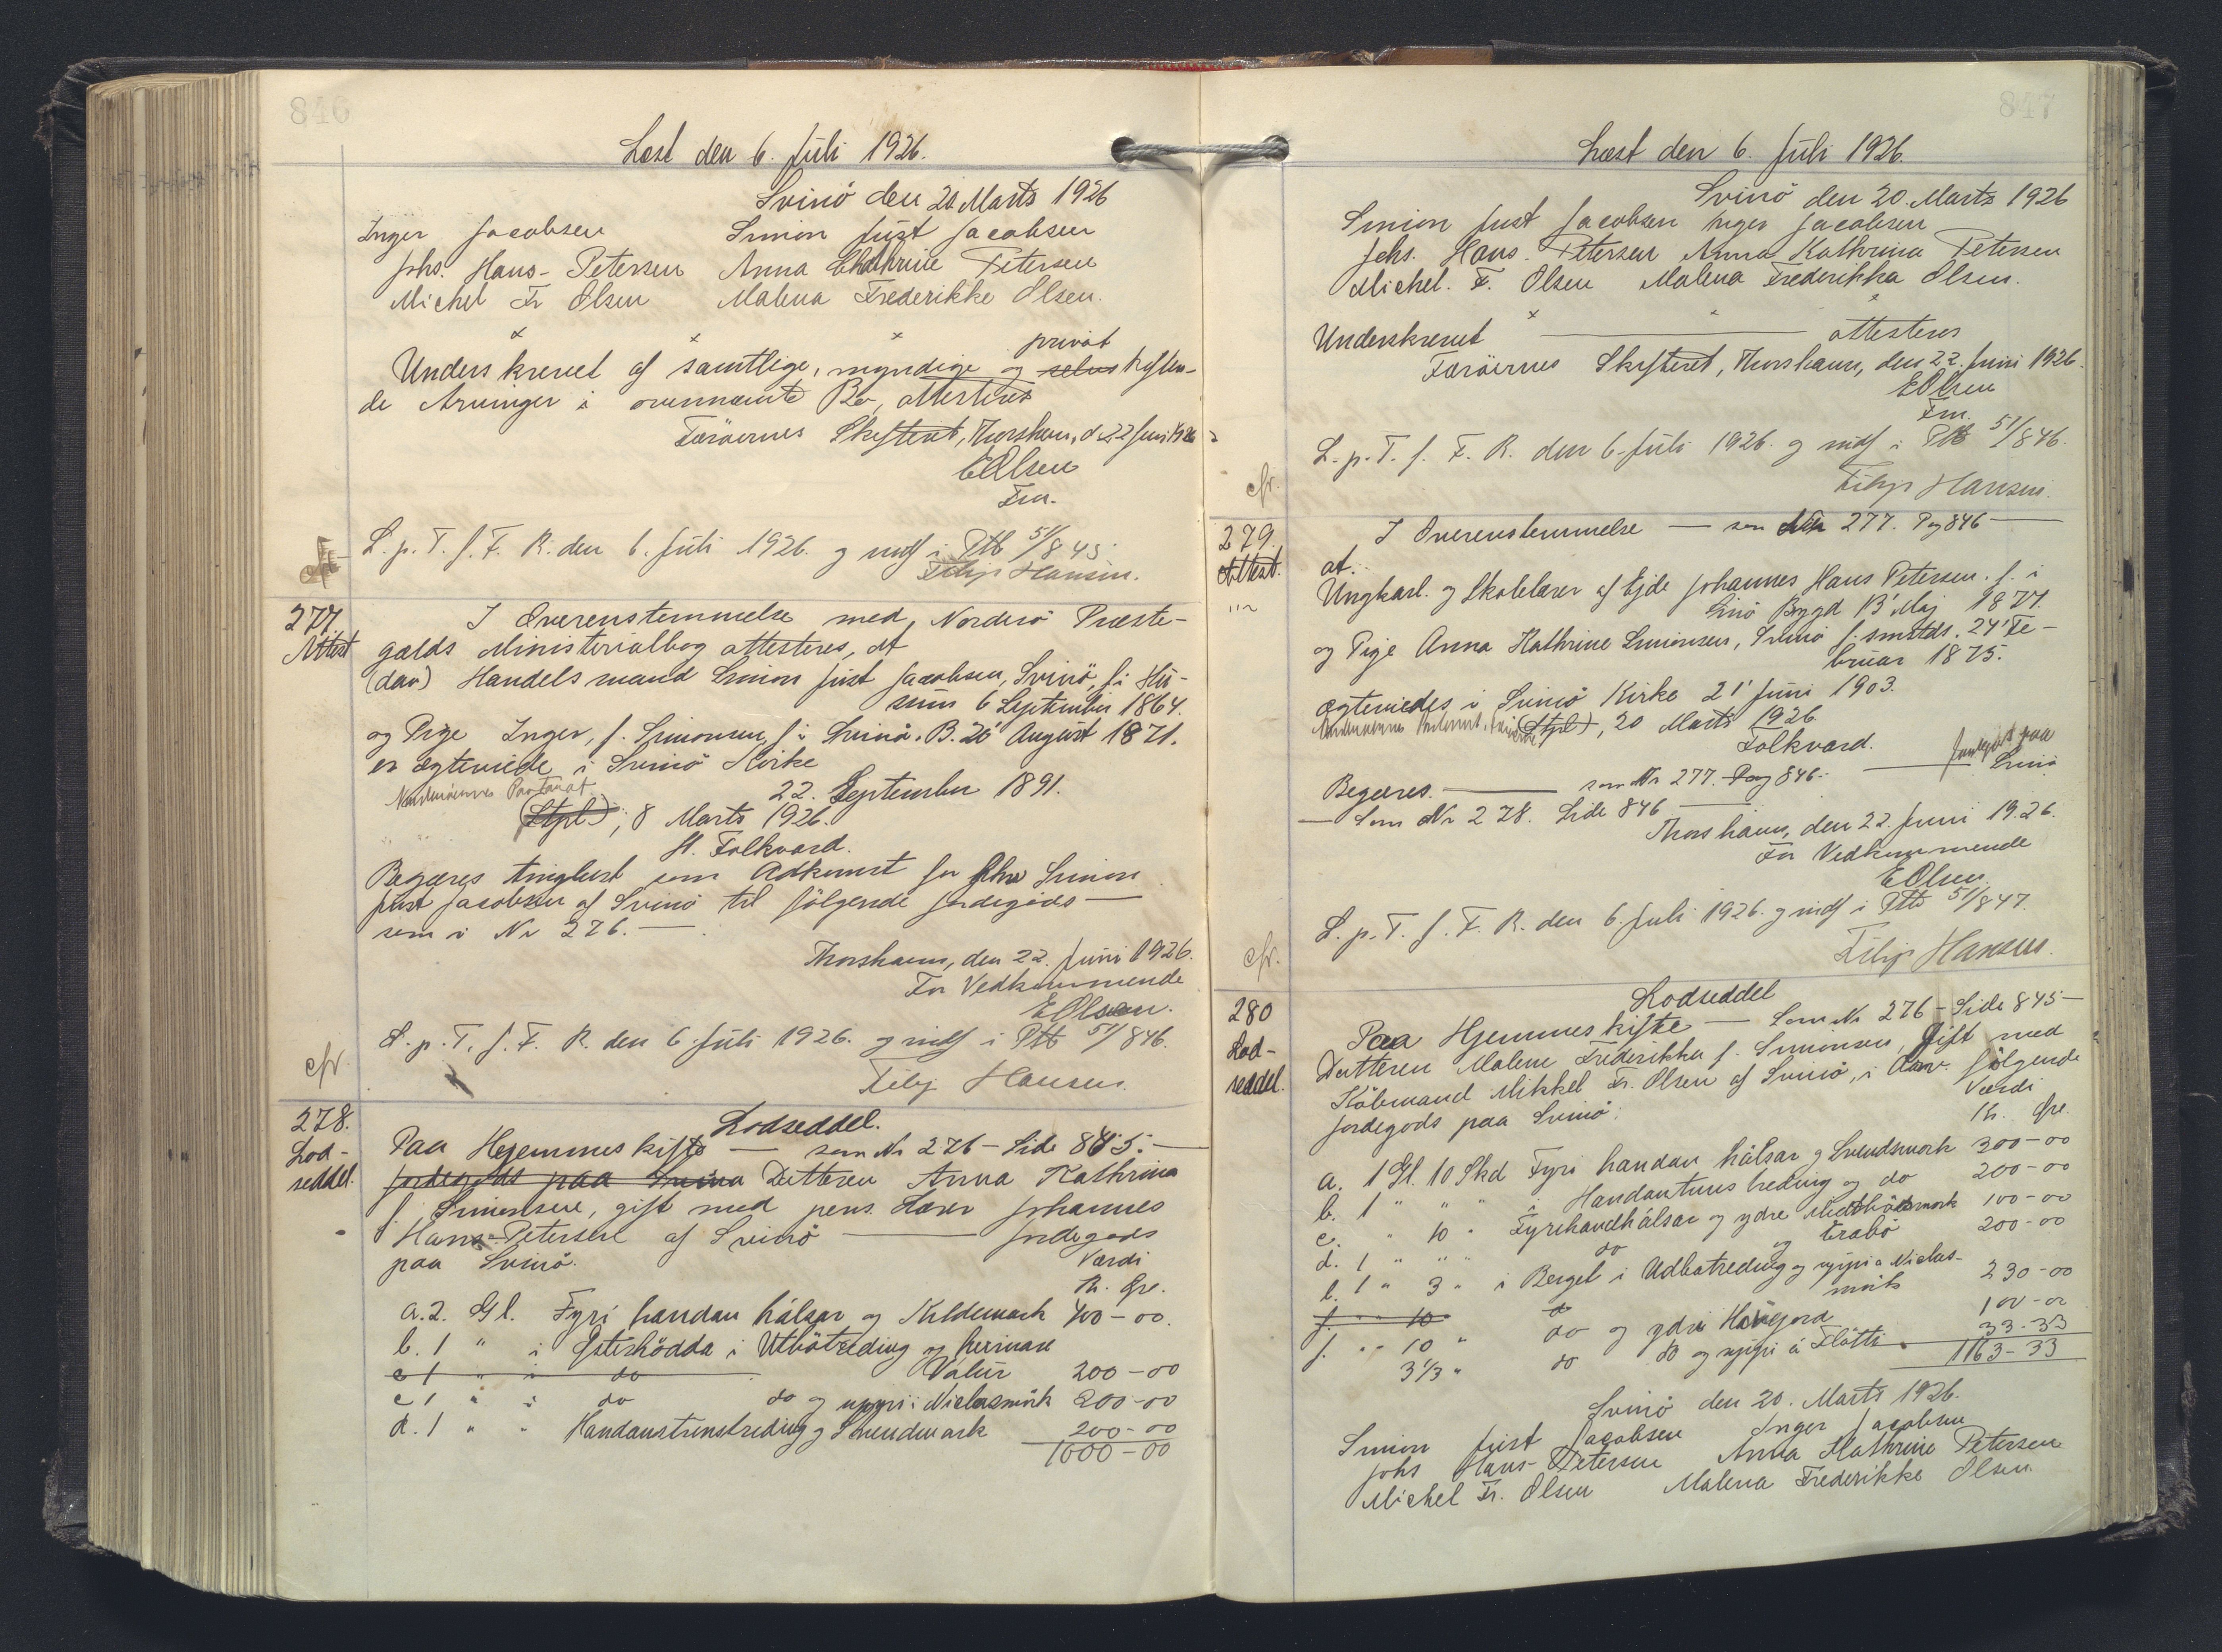 846
Læst den 6. Juli 1926.
Svinö den 20 Marts 1926
Inger Jacobsen Simon Just Jacobsen
Johs. Hans-Petersen Anna Cathrine Petersen
Michel Fr Olsen Malena Frederikke Olsen.
privat
Underskrevet af samtlige, myndige og selvs skiften-
de Arvinger i ovennævnte Bo, attesteres
Færöernes Skifteret, Thorshavn, d. 22 Juni 1926
EOlsen
Fm.
L. p. T. f. F. R. den 6. Juli 1926. og indf i Ptb 51/845.
Filip Hansen.
277.
Attest
I Overensstemmelse med Norderö Præste-
gælds Ministerialbog attesteres, at
(dav) Handelsmand Simon Just Jacobsen, Svinö, f. i Hü-
süm 6 September 1864.
og Pige Inger, f. Simonsen, f. i Svinö. B. 26' August 1871.
er ægteviede i Svinö Kirke
22. September 1891.
Norderöernes Pastorat.
(Stpl.), 8 Marts 1926.
H. Folkvard.
Begæres tinglæst som Adkomst for Simon
Just Jacobsen af Svinö til fölgende Jordegods —
som i Nr 276. —
Thorshavn, den 22. Juni 1926.
For Vedkommende
EOlsen.
L. p. T. f. F. R. den 6. Juli 1926. og indf i Ptb 51/846.
cfr.
Filip Hansen.
278.
Lod-
seddel.
Lodseddel.
Paa Hjemmeskifte — som Nr 276 – Side 845. —
Jordegods paa Svinö Datteren Anna Kathrina
f. Simonsen, gift med pens. Lærer Johannes
Hans-Petersen af Svinö — Jordegods
paa Svinö.
Værdi
Kr. Øre.
a. 2. Gl. Fyri handan hálsar og Kildemark 400-00.
b. 1 " i Østerhödda i Utbötreding og heimare
c 1 " " doVálür 200-00
c 1 " " do do og uppi i Niclasmörk 200-00
d. 1 " " Handanstunstreding og Svendmark 200-00
1000-00
847
Læst den 6. Juli 1926.
Svinö den 20. Marts 1926
Simon Just Jacobsen Inger Jacobsen
Johs. Hans-Petersen Anna Kathrina Petersen
Michel. F. Olsen Malena Frederikka Olsen.
Underskrevet — attesteres
Færöernes Skifteret, Thorshavn, den 22. Juni 1926.
EOlsen
Fm.
L. p. T. f. F. R. den 6. Juli 1926. og indf i Ptb 51/846.
cfr.
Filip Hansen.
279.
Attest.
I Overenstemmelse — som Nr 277. Pag 846 —
at:
Ungkarl. og Skolelærer af Ejde Johannes Hans Petersen. f. i
Bygd 13' Maj 1877.
og Pige Anna Kathrine Simonsen, Svinö f. smstds. 24' Fe-
bruar 1875.
ægteviedes i Svinö Kirke 21' Juni 1903.
(Stpl.), 20 Marts 1926.
Folkvard.
Begæres. — som Nr 277. Pag 846. — Jordegods paa
Svinö
— som Nr 278. Side 846 —
Thorshavn, den 22. Juni 1926.
For Vedkommende
EOlsen.
L. p. T. f. F. R. den 6. Juli 1926. og indf i Ptb 51/847.
cfr.
Filip Hansen.
280
Lod-
seddel.
Lodseddel
Paa Hjemmeskifte — som Nr 276 – Side 845 —
Datteren Malene Frederikka f. Simonsen, gift med
Köbmand Mikkel Fr. Olsen af Svinö, i Arv fölgende
Jordegods paa Svinö:
Værdi
Kr. Øre.
a. 1 Gl. 10 Skd Fyri handan hálsar og Svendsmork 300-00
b. 1 " " " i Handantuns treding og do 200-00
c. " 10 " Fyrihandhálsar og ydre Midhödsmork 100-00
d. 1 " " " do og Trabö 200-00
e. 1 " 3 " i Berget i Udbøtreding og uppi a Niclas-
mörk 230-00
f. " " 10 do
f. " " 10 " do og ydri Hávejord 100-00
3 1/3 " do do og uppi á Flötti 33-33
1163-33
Svinö den 20. Marts 1926.
Simon Just Jacobsen Inger Jacobsen
Johs Hans-Petersen Anna Kathrine Petersen
Michel Fr. Olsen Malena Frederikke Olsen